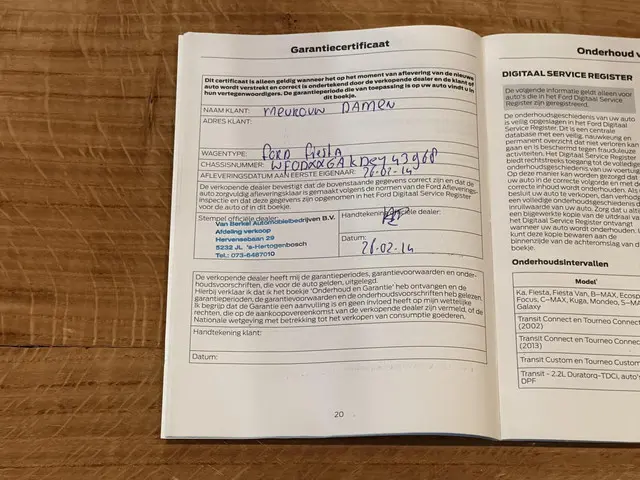 Garantiecertificaat
Dit certificaat is alleen geldig wanneer het op het moment van aflevering van de nieuwe
auto wordt verstrekt en correct is ondertekend door de verkopende dealer en de klant of
hun vertegenwoordigers. De garantieperiode die van toepassing is op uw auto vindt u in
dit boekje.
NAAM KLANT: MEVROUW DAMEN
ADRES KLANT:
WAGENTYPE: FORD Fiesta
CHASSISNUMMER:
AFLEVERINGSDATUM AAN EERSTE EIGENAAR: 26-02-14
De verkopende dealer bevestigt dat de bovenstaande gegevens correct zijn en dat de
auto zorgvuldig afleveringsklaar is gemaakt volgens de normen van de Ford Aflevering-
inspectie en dat deze gegevens zijn opgenomen in het Ford Digitaal Service Register
van de auto of in dit boekje.
Stempel officiële dealer:
Van Berkel Automobielbedrijven B.V.
Afdeling verkoop
Hervensebaan 29
5232 JL 's-Hertogenbosch
Tel.: 073-6487010
Handtekening officiële dealer:
Datum:
26.02.14
De verkopende dealer heeft mij de garantieperiodes, garantievoorwaarden en onder-
houdsvoorschriften, die voor de auto gelden, uitgelegd.
Hierbij verklaar ik dat ik het boekje 'Onderhoud en Garantie' heb ontvangen en de
garantieperiodes, de garantievoorwaarden en de onderhoudsvoorschriften heb gelezen.
Ik begrijp dat de Garantie een aanvulling is en geen invloed heeft op mijn wettelijke
rechten, die op de aankoopovereenkomst van de verkopende dealer zijn vermeld, of de
Nationale wetgeving met betrekking tot het verkopen van consumptie goederen.
Handtekening klant:
Datum:
20
Onderhoud v
DIGITAAL SERVICE REGISTER
De volgende informatie geldt alleen voor
auto's die in het Ford Digitaal Service
Register zijn geregistreerd.
De onderhoudsgeschiedenis van uw auto
is veilig opgeslagen in het Ford Digitaal
Service Register. Dit is een centrale
database met een veilig, nauwkeurig en
permanent overzicht dat niet verloren kan
gaan en is beschermd tegen frauduleuze
activiteiten. Het Digitaal Service Register
biedt rechtstreeks toegang tot de volledige
onderhoudsgeschiedenis van uw voertuig.
Op deze manier kan worden gezorgd dat
uw auto in de correcte volgorde en met de
correcte inhoud wordt onderhouden. Als u
besluit uw auto te verkopen, dan verhoogt
een volledige onderhoudsgeschiedenis de
inruilwaarde van uw auto. Zorg dat u altijd
een bijgewerkte kopie van de uitdraai van
het Digitaal Service Register ontvangt
wanneer uw auto wordt onderhouden. U
kunt deze kopie bewaren aan de
binnenzijde van de achteromslag van dit
boekje.
Onderhoudsintervallen
Model
Ka, Fiesta, Fiesta Van, B-MAX, Ecosp
Focus, C-MAX, Kuga, Mondeo, S-MA
Galaxy
Transit Connect en Tourneo Connect
(2002)
Transit Connect en Tourneo Connect
(2013)
Transit Custom en Tourneo Custom
Transit - 2.2L Duratorq-TDCi, auto's
DPF